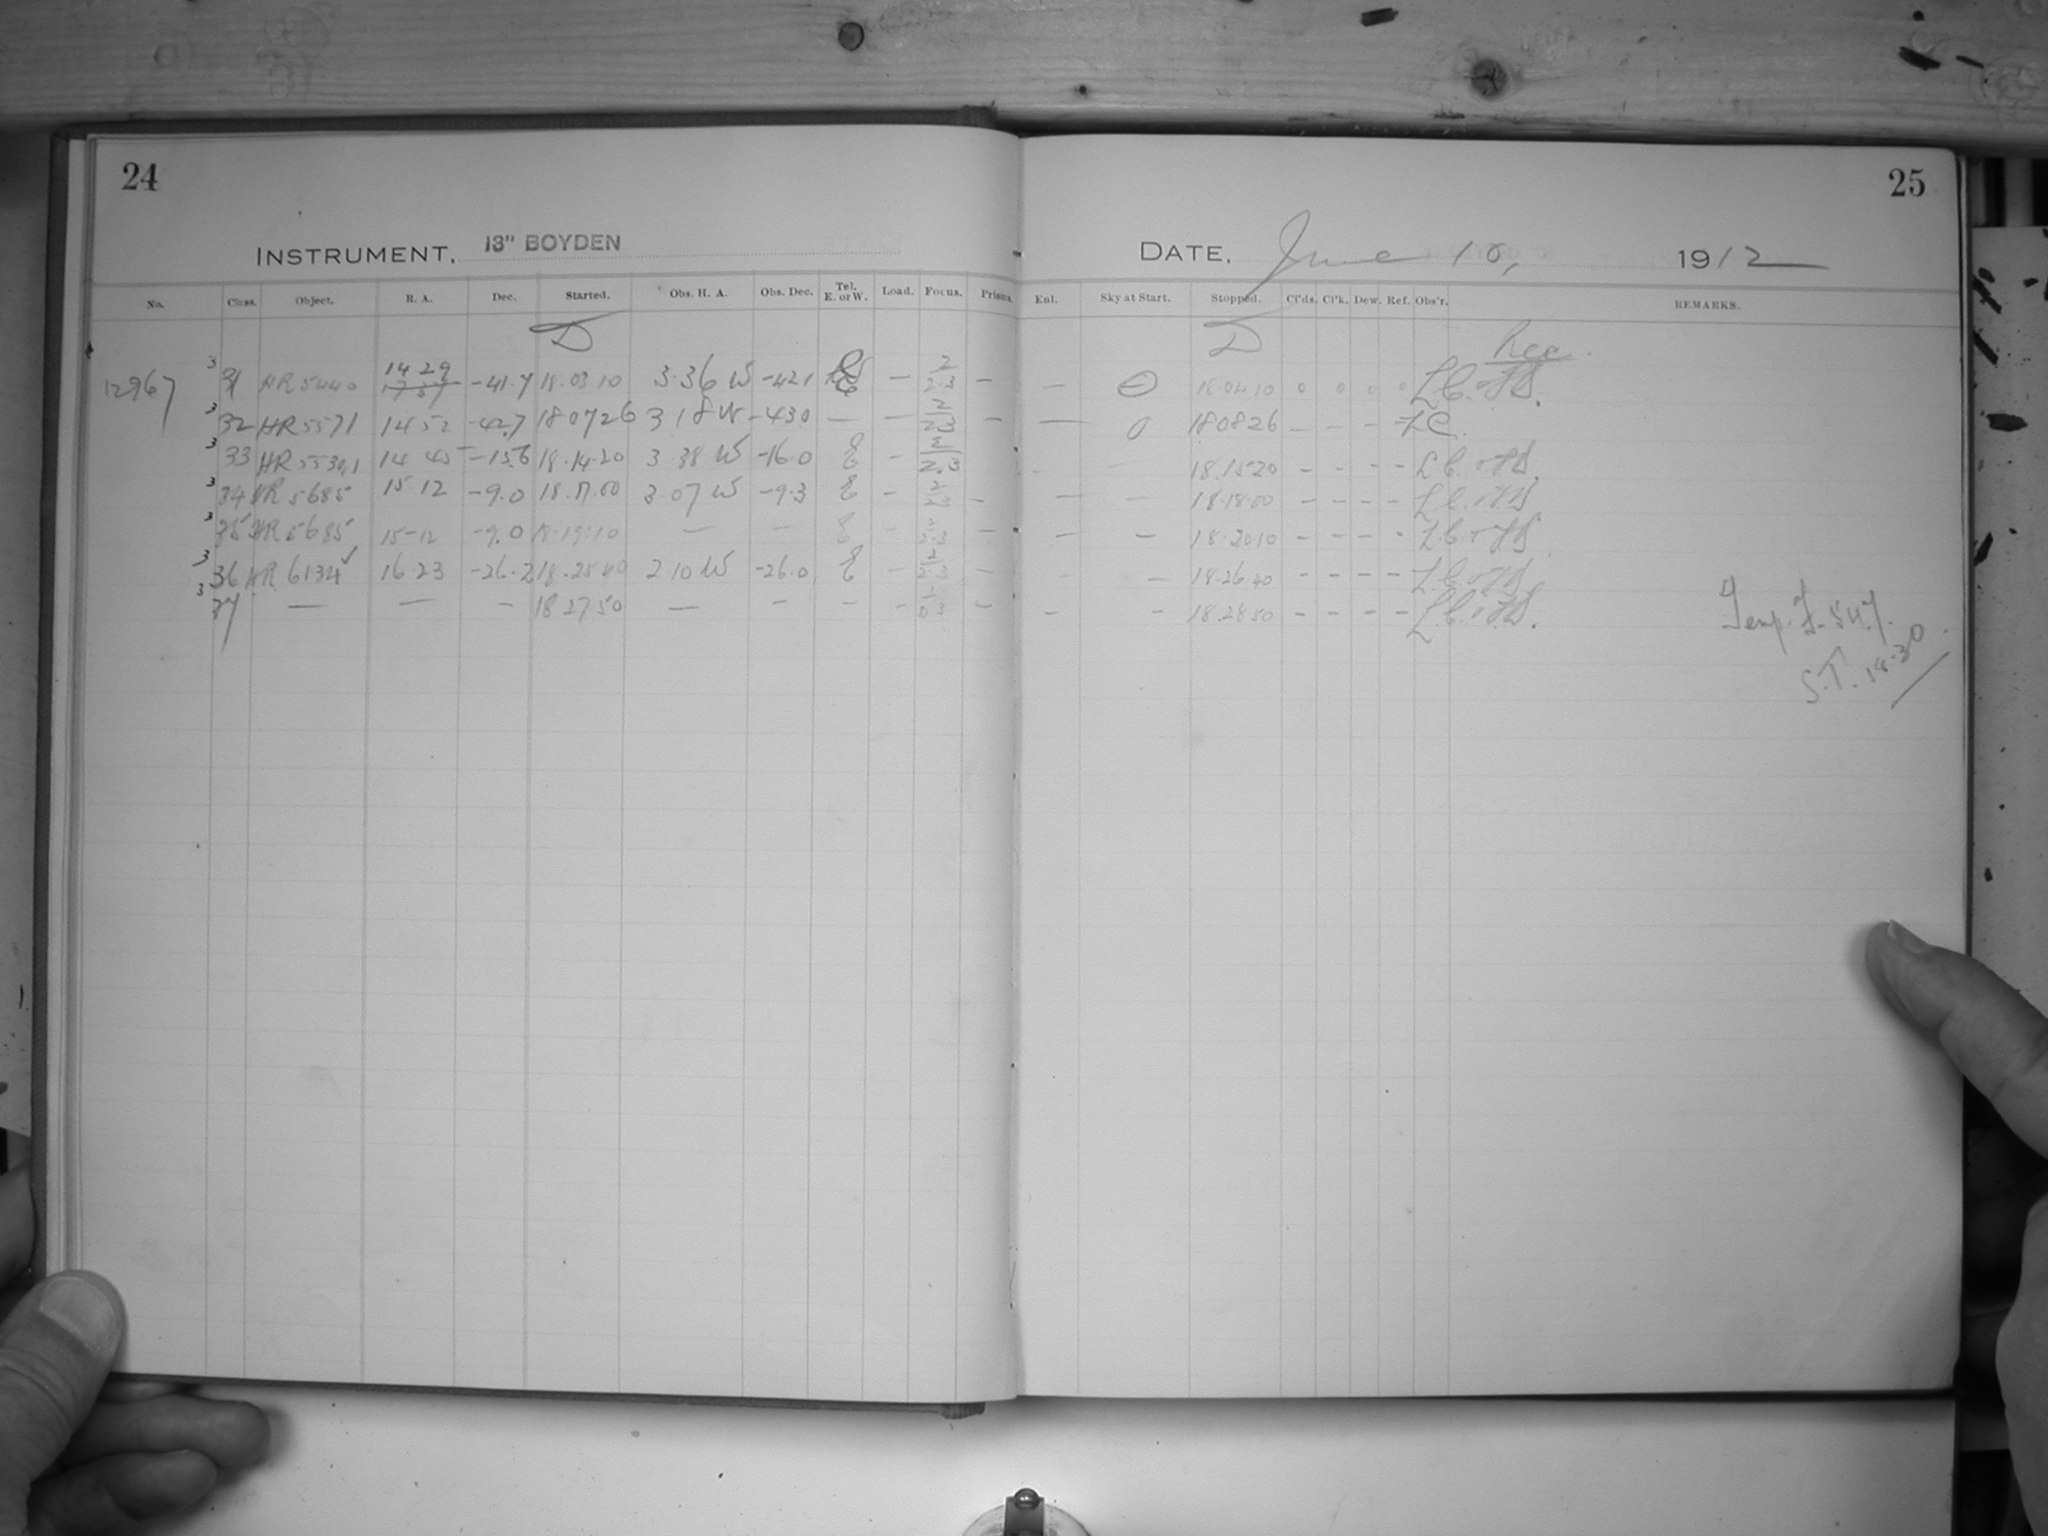 24
25
INSTRUMENT. 13" BOYDEN
DATE. June 10, 1912
No. Class. Object. R. A. Dec. Started. Obs. H. A. Obs. Dec. Tel. E. or W. Load. Focus. Prisms. Enl. Sky at Start. Stopped. Cl'ds. Cl'k. Dew. Ref. Obs'r. REMARKS.
D D Rec.
14 29
12967 3 31 HR 5440 17 57 -41.7 18.03.10 3.36 W -42.1 E — 2.3 — — 18.04.10 0 0 0 0 L.C. + F.S.
3 32 HR 5571 14 52 -42.7 18 07 26 3 18 W -43.0 — — — 0 18 08 26 — — — — LC.
3 33 HR 5530,1 14 45 -15.6 18.14.20 3 38 W -16.0 E — 18.15.20 - - - - L.C. + F.S.
3 34 HR 5685 15.12 -9.0 18.17.00 3.07 W -9.3 E — — — — 18.18.00 - - - - L.C. + F.S.
3 35 HR 5685 15-12 -9.0 18.19.10 — — E — — — — 18.20.10 - - - - L.C. + F.S.
3 36 HR 6134 ✓ 16.23 -26.2 18.25.40 2 10 W -26.0 E — — — 18.26.40 - - - - L.C. + F.S.
3 37 — — — 18 27.50 — — — — — — — 18.28.50 - - - - L.C. + F.S.
Temp. F. 54.7.
S.T. 18.30